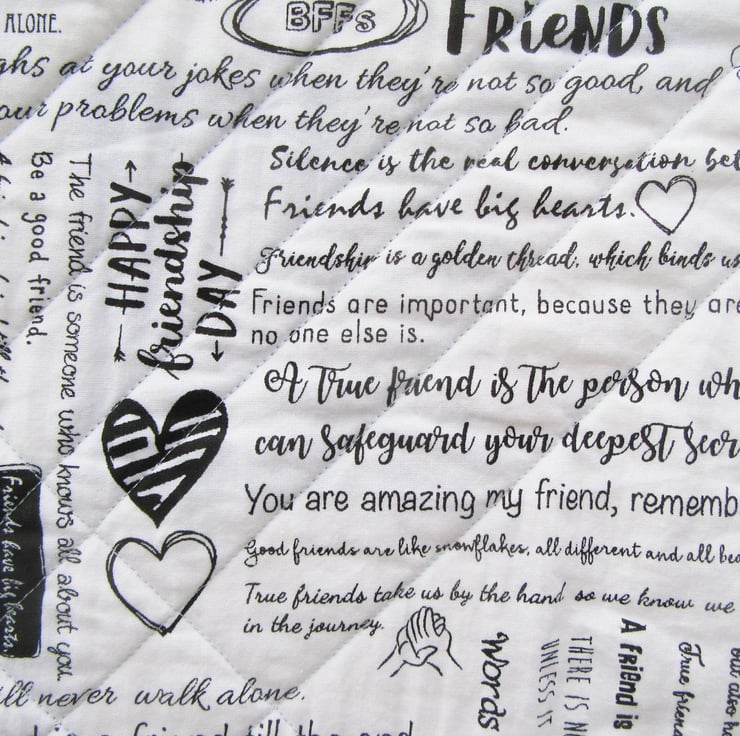 ALONE.
BFFs
FRIENDS
at your jokes when they're not so good, and
problems when they're not so bad.
Silence is the real conversation
Friends have big hearts.
Friendship is a golden thread, which binds us
Friends are important, because they are
no one else is.
A True friend is The person
can Safeguard your deepeST
You are amazing my friend,
Good friends are like snowflakes, all different and all
True friends take us by the hand so we know we
in the journey.
HAPPY
friendship
DAY
The friend is someone who knows all about you
Be a good friend.
Friends have big hearts.
never walk alone.
friend till the end
Words
THERE IS
UNLESS IT
A FRiEND is
True
also